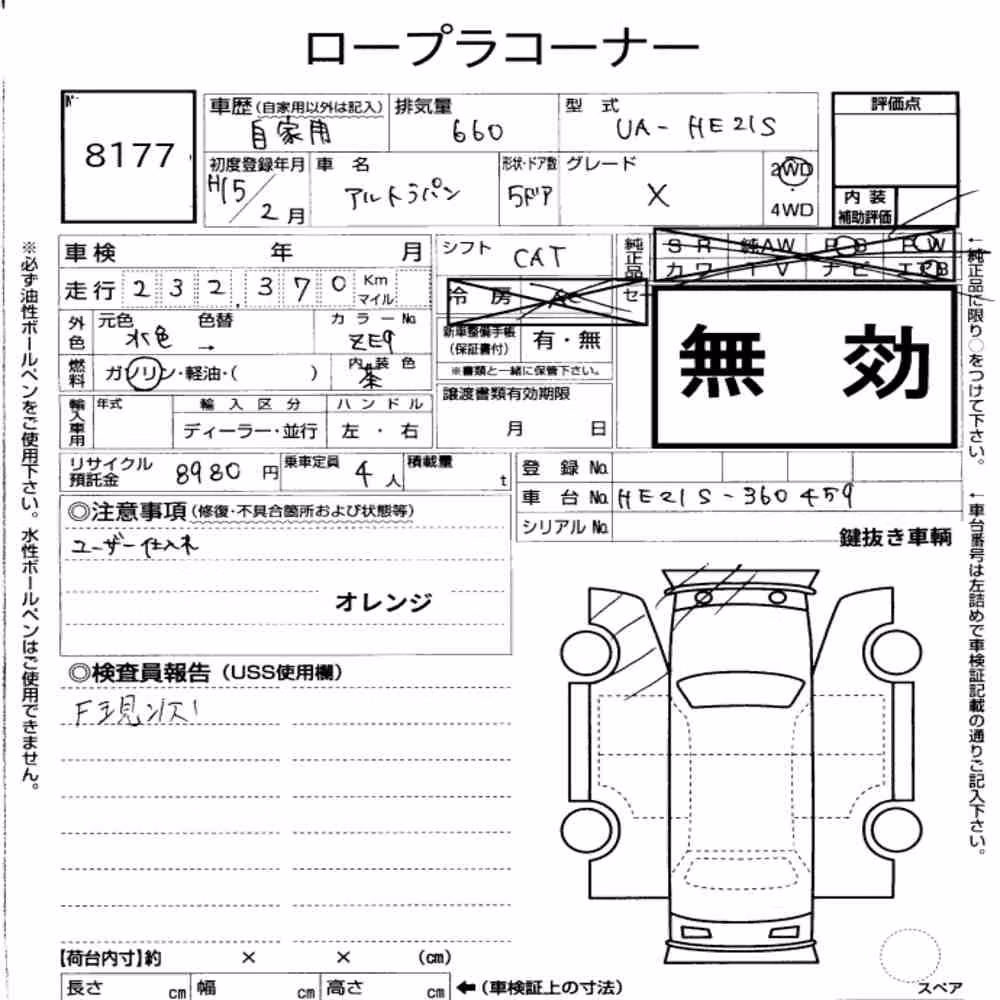 ロープラコーナー
8177
車歴(自家用以外は記入) 排気量 型 式 評価点
自家用 660 UA-HE21S
初度登録年月 車 名 形状・ドア数 グレード 2WD
H15/2月 アルトラパン 5ドア X ・
4WD
内 装
補助評価
車検 年 月 シフト CAT 純正品 SR 純AW PS PW
カワ TV ナビ エアB
走行 232,370 Km
マイル
冷 房 AC
外色 元色 色替 カラーNo.
水色 → ZE9
新車整備手帳
(保証書付) 有・無
※書類と一緒に保管下さい。
無 効
燃料 ガソリン・軽油・( ) 内装色
茶
輸入車用 年式 輸入区分 ハンドル
ディーラー・並行 左・右
譲渡書類有効期限
月 日
リサイクル
預託金 8980円 乗車定員 4人 積載量 t
登 録 No.
車 台 No. HE21S-360459
シリアル No.
鍵抜き車輌
◎注意事項(修復・不具合箇所および状態等)
ユーザー仕入れ
オレンジ
◎検査員報告(USS使用欄)
【荷台内寸】約 × × (cm)
長さ cm 幅 cm 高さ cm ←(車検証上の寸法)
スペア
※必ず油性ボールペンをご使用下さい。水性ボールペンはご使用できません。
←純正品に限り○をつけて下さい。
←車台番号は左詰めで車検証記載の通りご記入下さい。